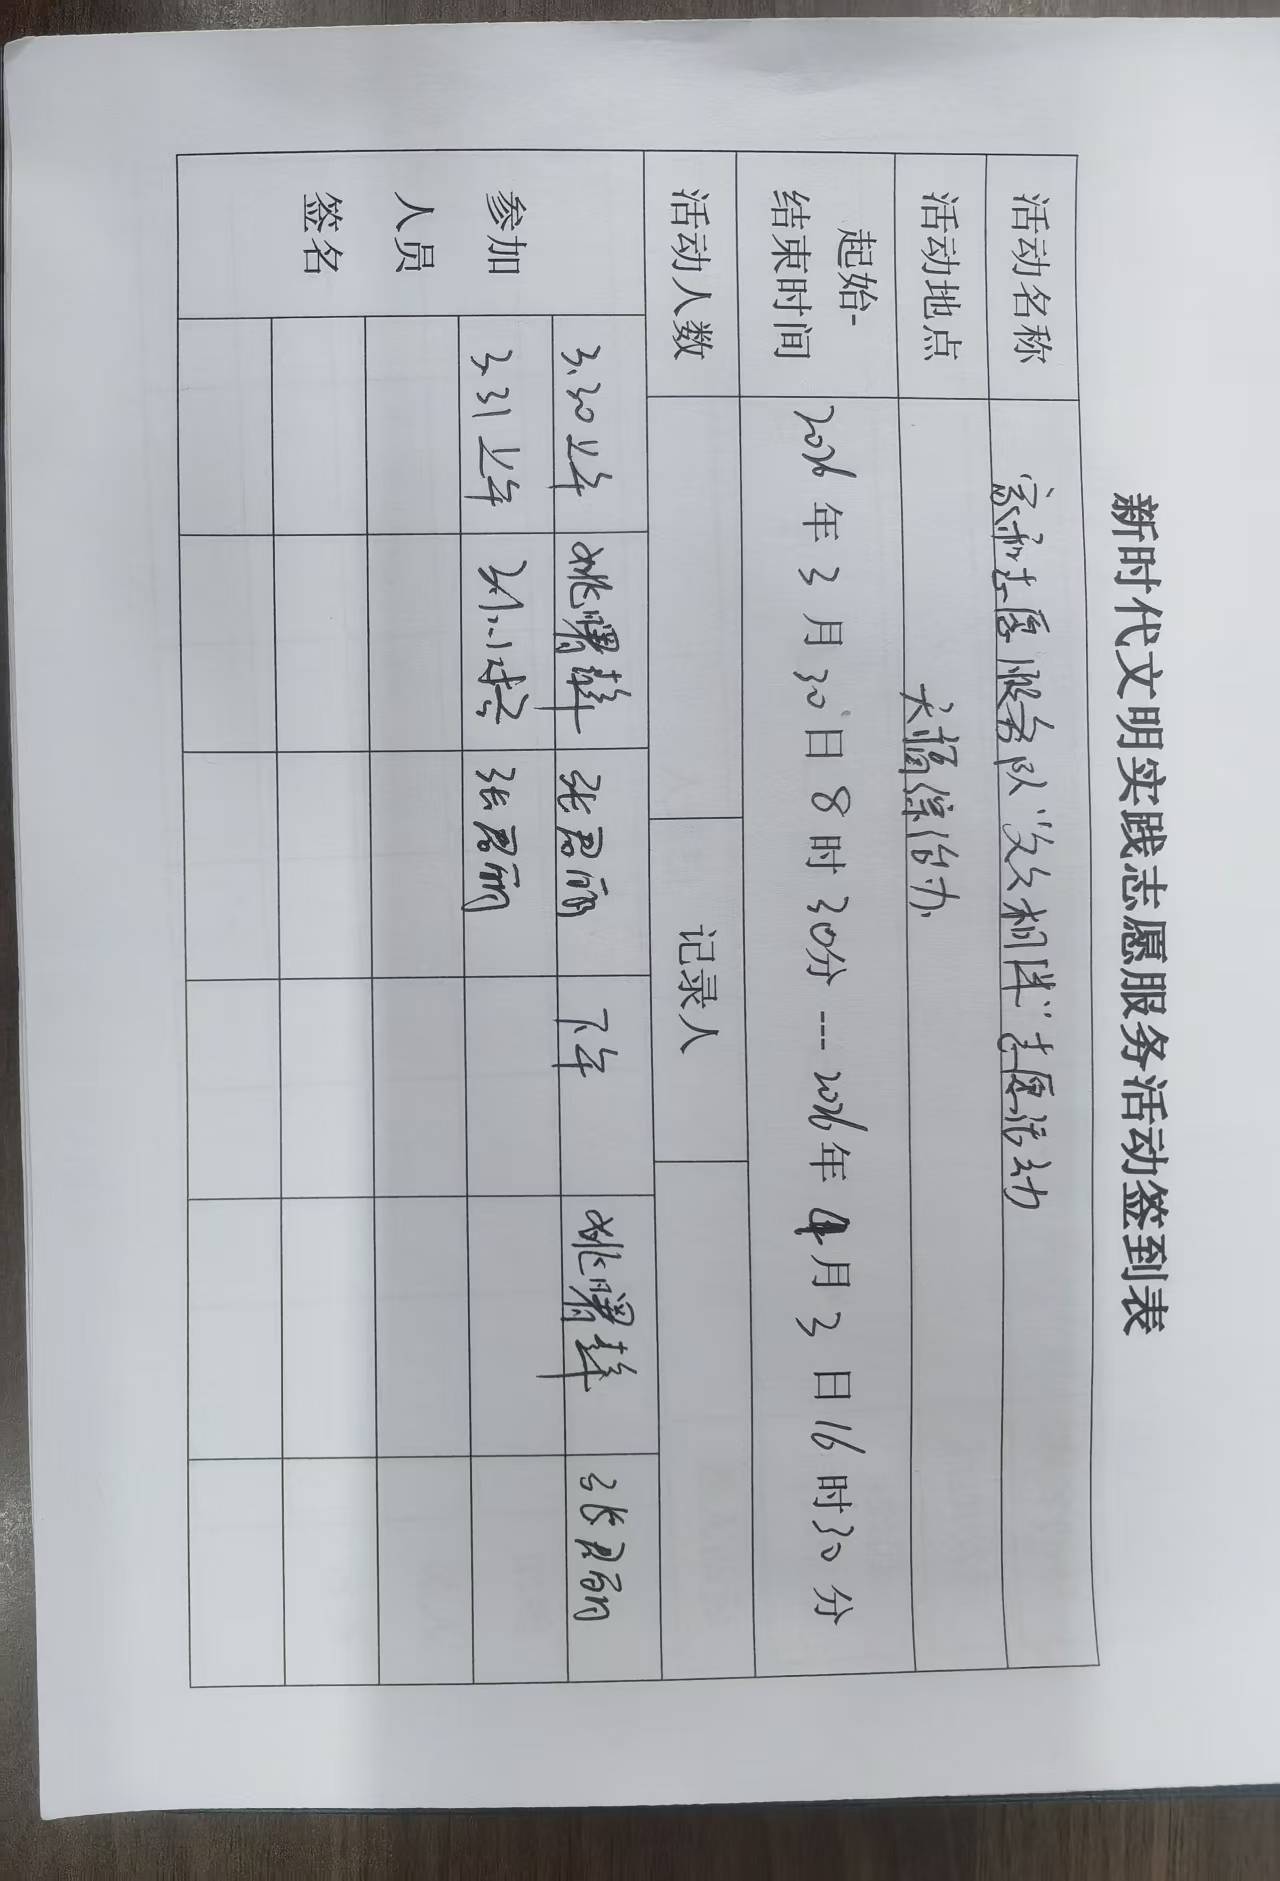 新时代文明实践志愿服务活动签到表
活动名称 家和志愿服务队"文文相伴"志愿活动
活动地点 综治办
起始-
结束时间 2026年3月30日8时30分---2026年4月3日16时30分
活动人数 记录人
参加
人员
签名
3.30上午 姚曙静 张君丽 下午 姚曙静 张君丽
3.31上午 刘小 张君丽